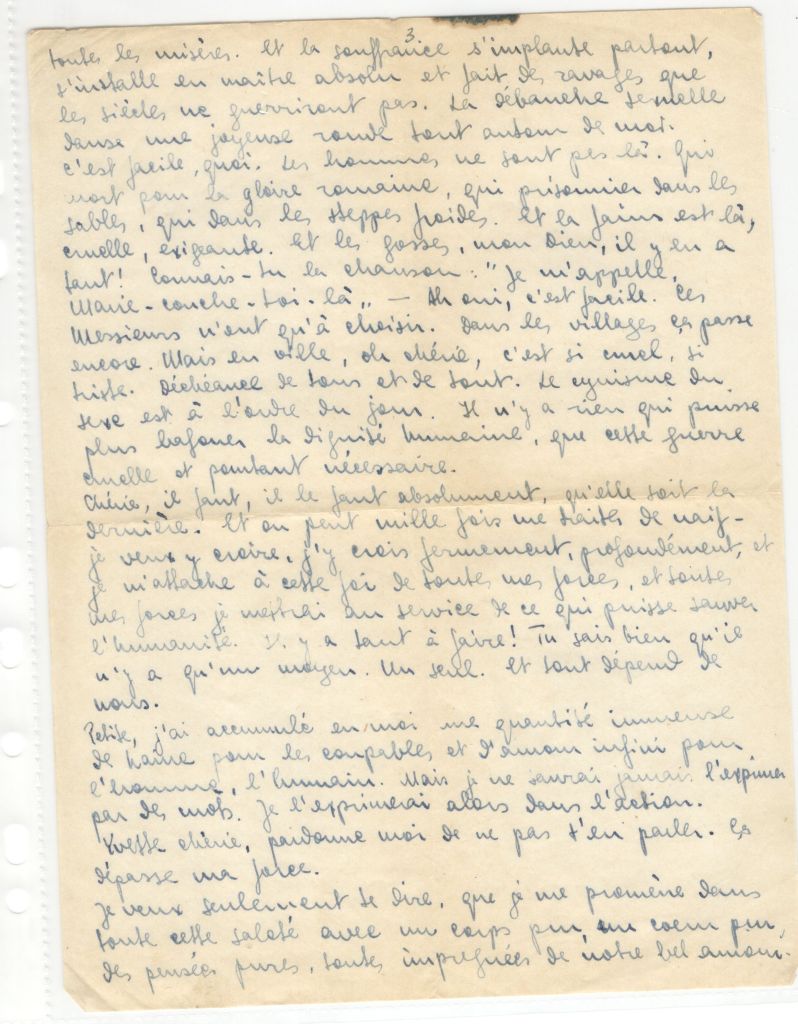 3.
toutes les misères. Et la souffrance s'implante partout,
s'installe en maître absolu et fait des ravages que
les siècles ne guerriront pas. La débauche sexuelle
danse une joyeuse ronde tout autour de moi.
C'est facile, quoi. Les hommes ne sont pas là. Qui
mort pour la gloire romaine, qui prisonnier dans les
sables, qui dans les steppes froides. Et la faim est là,
cruelle, exigeante. Et les gosses, mon Dieu, il y en a
tant! Connais-tu la chanson: "Je m'appelle,
Marie-couche-toi-là„ — Ah oui, c'est facile. Ces
Messieurs n'ont qu'à choisir. Dans les villages ça passe
encore. Mais en ville, oh chérie, c'est si cruel, si
triste. Déchéance de tous et de tout. Le cynisme du
sexe est à l'ordre du jour. Il n'y a rien qui puisse
plus bafouer la dignité humaine, que cette guerre
cruelle et pourtant nécessaire.
Chérie, il faut, il le faut absolument, qu'elle soit la
dernière. Et on peut mille fois me traiter de naif -
je veux y croire, j'y crois fermement, profondément, et
je m'attache à cette foi de toutes mes forces, et toutes
mes forces je mettrai au service de ce qui puisse sauver
l'humanité. Il y a tant à faire! Tu sais bien qu'il
n'y a qu'un moyen. Un seul. Et tout dépend de
nous.
Petite, j'ai accumulé en moi une quantité immense
de haine pour les coupables et d'amour infini pour
l'homme, l'humain. Mais je ne saurai jamais l'exprimer
par des mots. Je l'exprimerai alors dans l'action.
Yvette chérie, pardonne moi de ne pas t'en parler. Ça
dépasse ma force.
Je veux seulement te dire, que je me promène dans
toute cette saleté avec un corps pur, un coeur pur,
des pensées pures, toutes impregnées de notre bel amour.